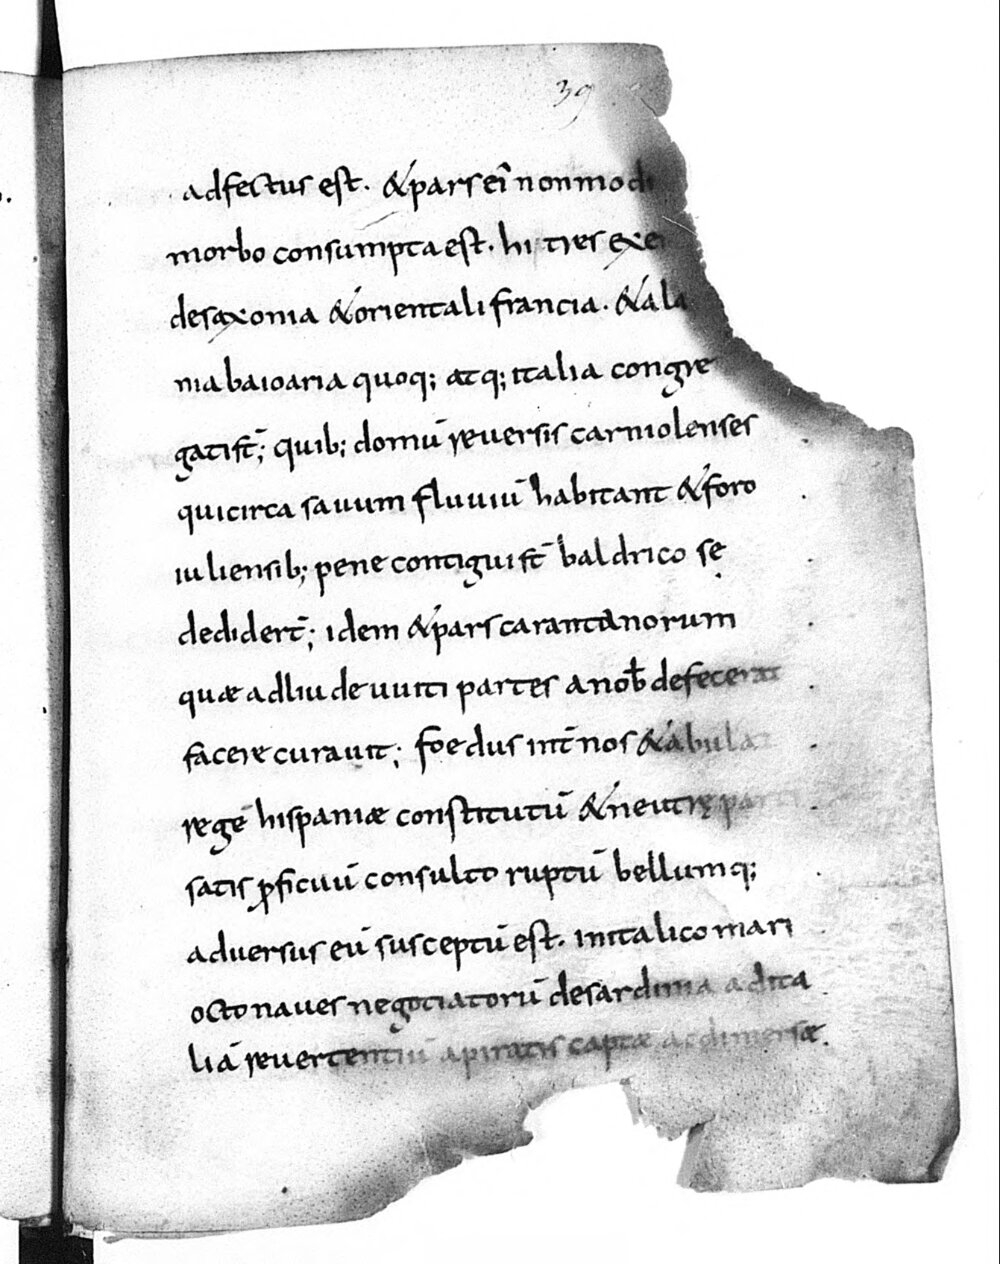 39
adfectus est. &pars eī non modi
morbo consumpta est. hi tres exer
de saxonia &orientali francia. &ala
nia baioaria quoq; atq; italia congre
gati st̄; quib; domū reuersis carniolenses
qui circa sauum fluuiū habitant &foro
iuliensib; pene contigui st̄ baldrico se
dedidert̄; idem &pars carantanorum
quæ ad liudeuuiti partes a nob̄ defecerat
facere curauit; foedus int̄ nos &abulaz
regē hispaniæ constitutū &neutrę parti
satis ꝓficuū consulto ruptū bellumq;
aduersus eū susceptū est. in italico mari
octo naues negotiatorū de sardinia ad ita
liā reuertentiū a piratis captæ ac dimersæ.